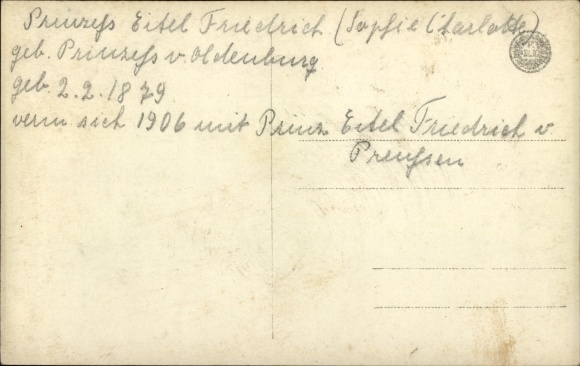 Prinzeß Eitel Friedrich (Sophie Charlotte)
geb. Prinzeß v Oldenburg
geb. 2.2.1879
verm sich 1906 mit Prinz Eitel Friedrich v
Preußen